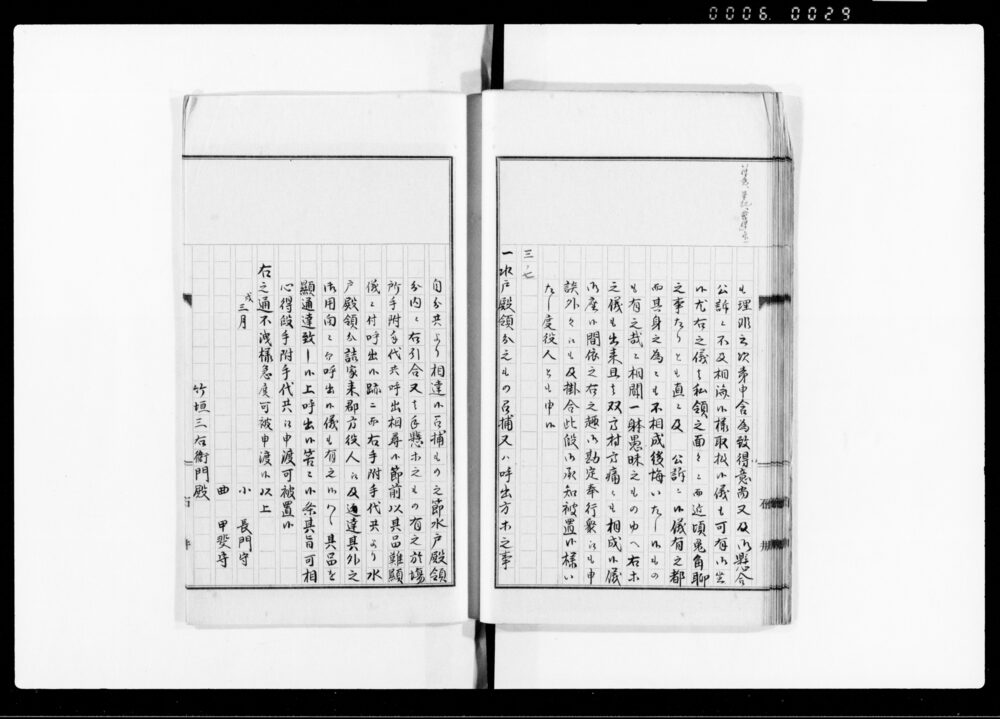 0006 0029
も理非之次第申含為致得意尚又及御懸合
公訴ニ不及相済候様取扱候儀も可有御坐
候尤右之儀ハ私領之面々ニ而近頃兎角聊
之事たりとも直ニ及 公訴ニ候儀有之都
而其身之為ニも不相成後悔いたし候もの
も有之哉ニ相聞一躰愚昧之ものゆへ右等
之儀も出来且ハ双方村方痛ニも相成候儀
御座候間依之右之趣御勘定奉行衆江も申
談外々江も及掛合此段御承知被置候様い
たし度役人とも申候
三七
一水戸殿領分之もの召捕又ハ呼出方等之事
自分共より相達候召捕もの之節水戸殿領
分内ニ右引合又は手懸等之もの有之於場
所手附手代共呼出相尋候節前以其品難顕
儀ニ付呼出候跡ニ而右手附手代共より水
戸殿領分詰家来郡方役人江及通達其外之
御用向ニ而呼出候儀も有之候ハヽ其品を
顕通達致し候上呼出候筈ニ候条其旨可相
心得段手附手代共江申渡可被置候
右之通不洩様急度可被申渡候以上
戌三月
小 長門守
曲 甲斐守
竹垣三右衛門殿